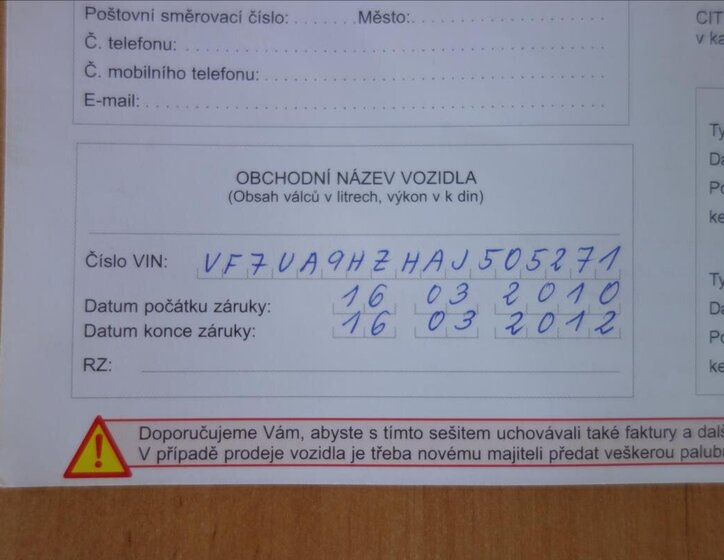 Poštovní směrovací číslo: Město:
Č. telefonu:
Č. mobilního telefonu:
E-mail:
OBCHODNÍ NÁZEV VOZIDLA
(Obsah válců v litrech, výkon v k din)
Číslo VIN: VF7UA9HZHAJ505271
Datum počátku záruky: 16 03 2010
Datum konce záruky: 16 03 2012
RZ:
Doporučujeme Vám, abyste s tímto sešitem uchovávali také faktury a
V případě prodeje vozidla je třeba novému majiteli předat veškerou
CIT
v ka
Ty
Da
Po
ke
Ty
Da
Po
ke